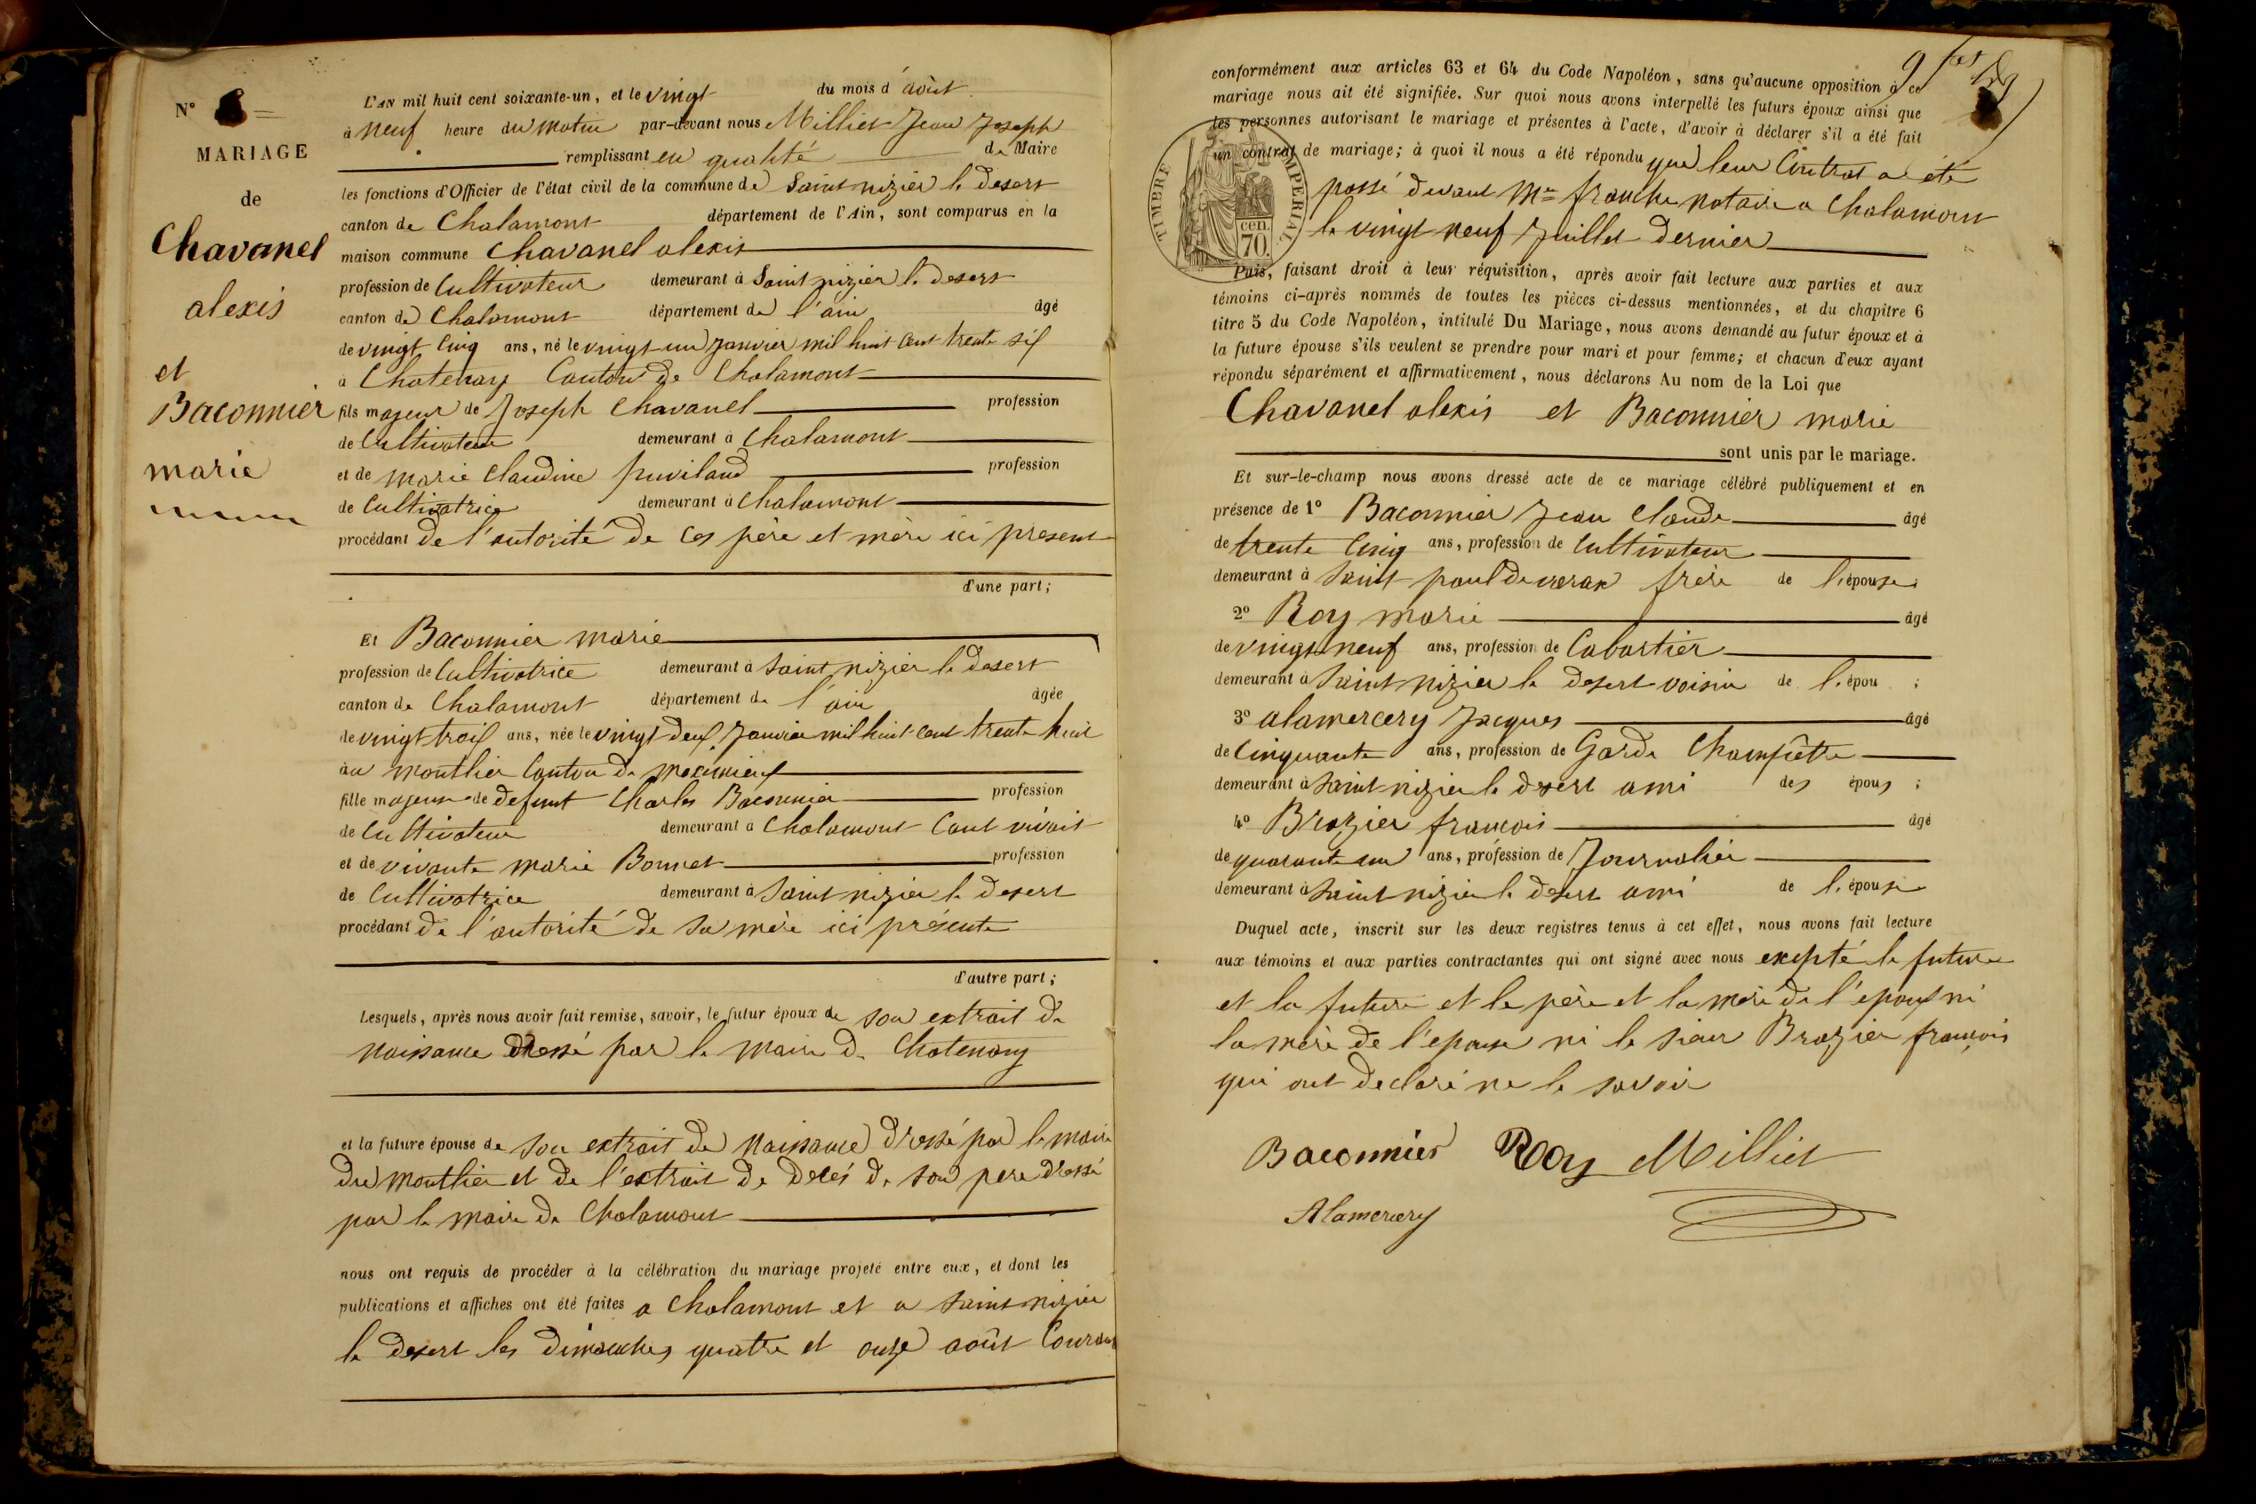 N°
MARIAGE
de
Chavanel
alexis
et
Baconnier
marie
L'AN mil huit cent soixante-un, et le vingt du mois d'août
à neuf heure du matin par-devant nous Milliet Jean Joseph
remplissant en qualité de Maire
les fonctions d'Officier de l'état civil de la commune de Saint nizier le desert
canton de Chalamont département de l'Ain, sont comparus en la
maison commune Chavanel alexis
profession de Cultivateur demeurant à Saint nizier le desert
canton de Chalamont département de l'ain âgé
de vingt cinq ans, né le vingt un janvier mil huit cent trente six
à Chatenay Canton de Chalamont
fils majeur de Joseph Chavanel profession
de Cultivateur demeurant à Chalamont
et de marie Claudine puviland profession
de Cultivatrice demeurant à Chalamont
procédant de l'autorité de ces père et mère ici present
d'une part;
Et Baconnier marie
profession de Cultivatrice demeurant à Saint nizier le desert
canton de Chalamont département de l'ain âgée
de vingt trois ans, née le vingt deux Janvier mil huit cent trente huit
au monthier Canton de meximieux
fille majeure de defunt Charles Baconnier profession
de Cultivateur demeurant à Chalamont vivait
et de vivante marie Bonnet profession
de Cultivatrice demeurant à Saint nizier le desert
procédant de l'autorité de sa mère ici présente
d'autre part;
Lesquels, après nous avoir fait remise, savoir, le futur époux de son extrait de
naissance dressé par le maire de Chatenay
et la future épouse de son extrait de naissance dressé par le maire
du monthier et de l'extrait de decés de son pere dressé
par le maire de Chalamont
nous ont requis de procéder à la célébration du mariage projeté entre eux, et dont les
publications et affiches ont été faites a Chalamont et a saint nizier
le desert les dimanches quatre et onze août Courant
conformément aux articles 63 et 64 du Code Napoléon, sans qu'aucune opposition à ce
mariage nous ait été signifiée. Sur quoi nous avons interpellé les futurs époux ainsi que
les personnes autorisant le mariage et présentes à l'acte, d'avoir à déclarer s'il a été fait
un contrat de mariage; à quoi il nous a été répondu que leur Contrat a été
passé devant Me franche notaire a Chalamont
le vingt neuf Juillet dernier
TIMBRE IMPÉRIAL
70 cen.
Puis, faisant droit à leur réquisition, après avoir fait lecture aux parties et aux
témoins ci-après nommés de toutes les pièces ci-dessus mentionnées, et du chapitre 6
titre 5 du Code Napoléon, intitulé Du Mariage, nous avons demandé au futur époux et à
la future épouse s'ils veulent se prendre pour mari et pour femme; et chacun d'eux ayant
répondu séparément et affirmativement, nous déclarons Au nom de la Loi que
Chavanel alexis et Baconnier marie
sont unis par le mariage.
Et sur-le-champ nous avons dressé acte de ce mariage célébré publiquement et en
présence de 1° Baconnier Jean Claude âgé
de trente Cinq ans, profession de Cultivateur
demeurant à Saint paul de varax frère de l'épouse
2° Roy marie âgé
de vingt neuf ans, profession de Cabartier
demeurant à Saint nizier le desert voisin de l'épou ;
3° alamercery Jacques âgé
de Cinquante ans, profession de Garde Champêtre
demeurant à Saint nizier le desert ami des épous ;
4° Brazier francois âgé
de quarante un ans, profession de Journalier
demeurant à Saint nizier le desert ami de l'épouse
Duquel acte, inscrit sur les deux registres tenus à cet effet, nous avons fait lecture
aux témoins et aux parties contractantes qui ont signé avec nous exepté le future
et la future et le père et la mère de l'epoux ni
la mère de l'epouse ni le sieur Brazier françois
qui ont declaré ne le savoir
Baconnier Roy Milliet
Alamercery